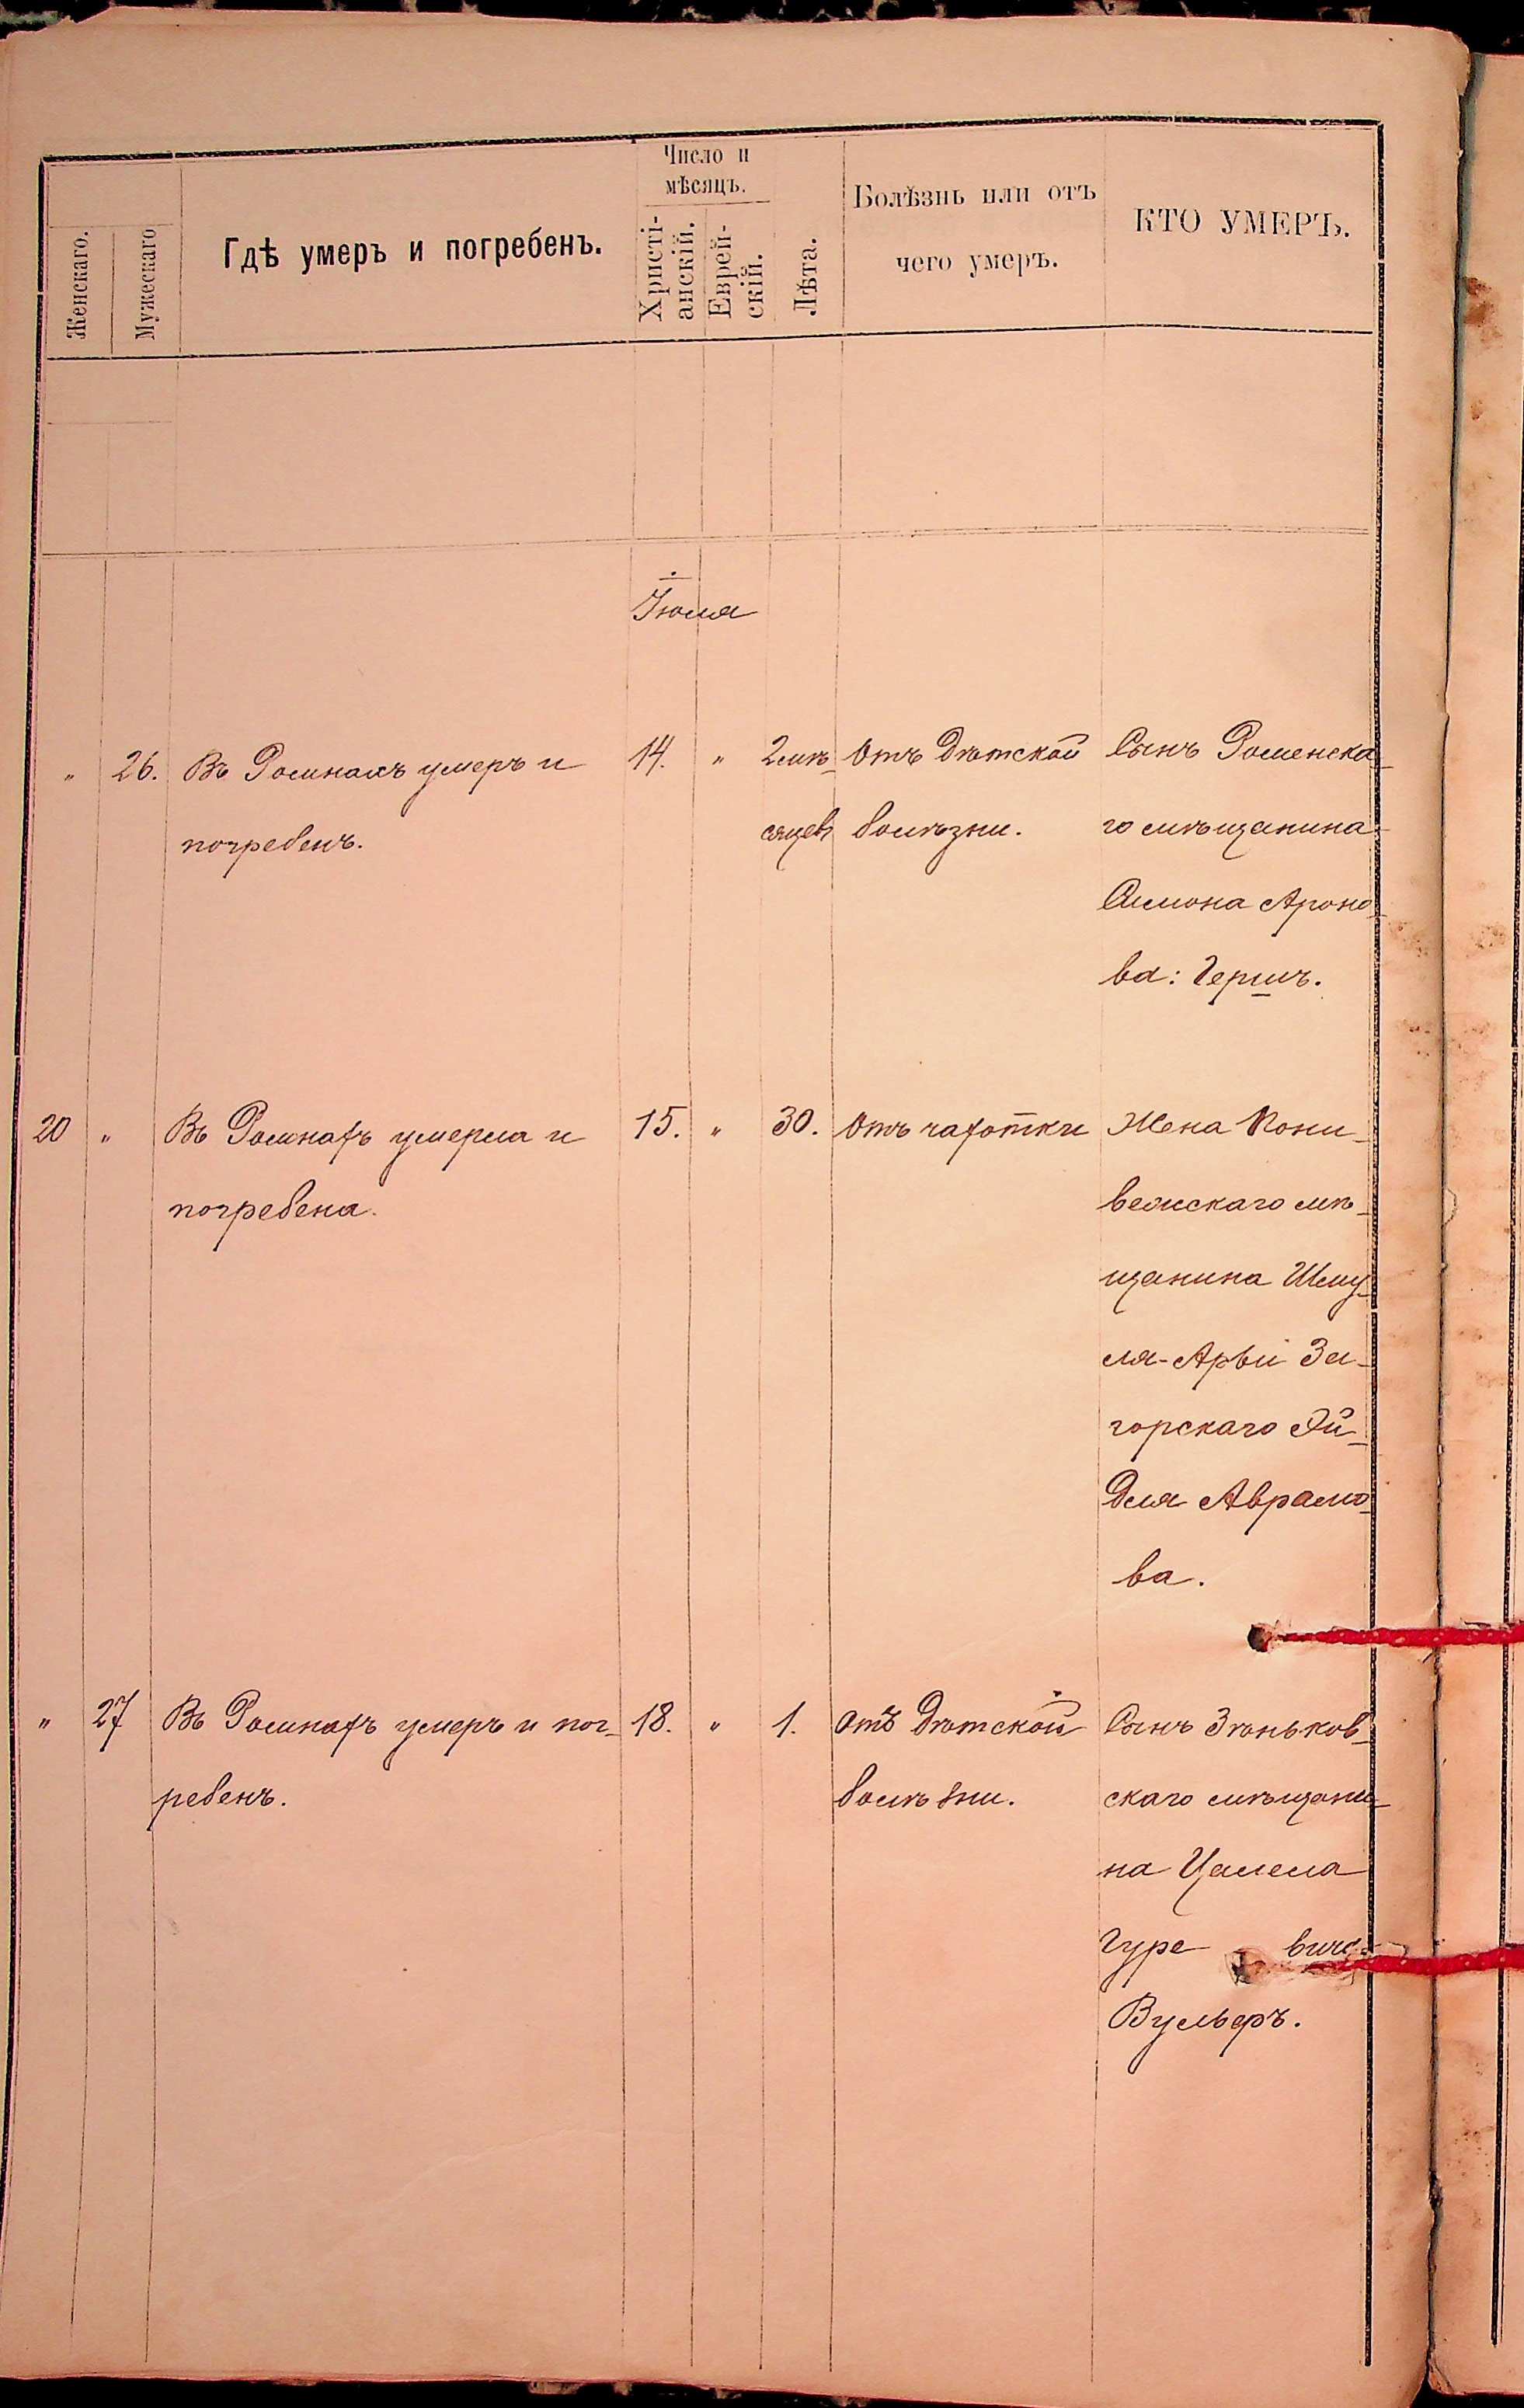 Женскаго.
Мужескаго
Гдѣ умеръ и погребенъ.
Число и
мѣсяцъ.
Христі-
анскій.
Еврей-
скій.
Лѣта.
Болѣзнь или отъ
чего умеръ.
КТО УМЕРЪ.
Іюля
„ 26. Въ Ромнахъ умеръ и
погребенъ.
14. „ 2 мѣ-
сяцевъ
Отъ дѣтской
болѣзни.
Сынъ Роменска-
го мѣщанина
Симона Ароно-
ва: Гершъ.
20 „ Въ Ромнахъ умерла и
погребена.
15. „ 30. Отъ чахотки
Жена Пони-
вежскаго мѣ-
щанина Шму-
ля-Арьи За-
горскаго Эй-
для Аврамо-
ва.
„ 27 Въ Ромнахъ умеръ и пог-
ребенъ.
18. „ 1. Отъ дѣтской
болѣзни.
Сынъ Зѣньков-
скаго мѣщани-
на Цалела
Гуре вича
Вульфъ.